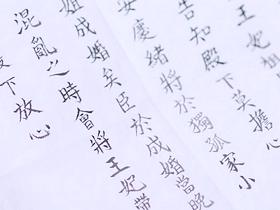 王妃
告知殿下莫擔心
安慶緒將於獨孤家小
姐成婚矣臣於成婚當晚
混亂之時會將王妃帶
下放心